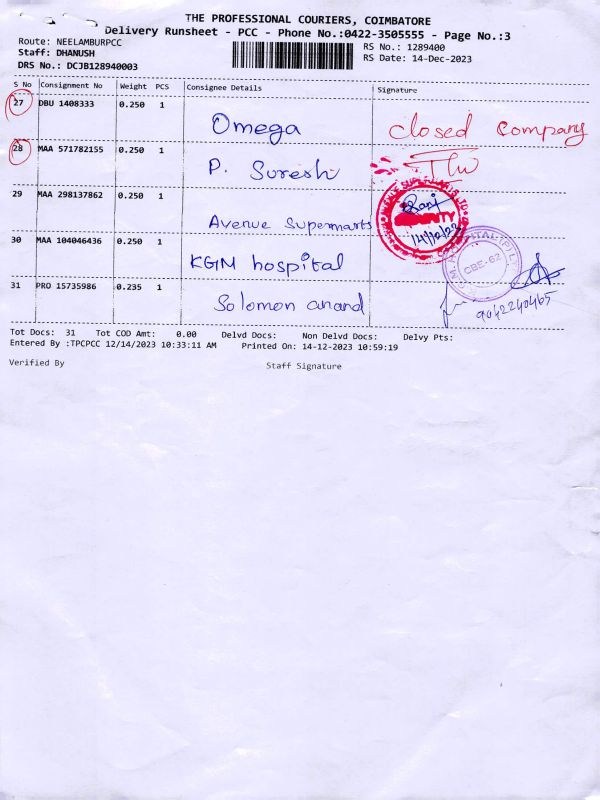 THE PROFESSIONAL COURIERS, COIMBATORE
Delivery Runsheet - PCC - Phone No.:0422-3505555 - Page No.:3
Route: NEELAMBURPCC RS No.: 1289400
Staff: DHANUSH RS Date: 14-Dec-2023
DRS No.: DCJB128940003
S No Consignment No Weight PCS Consignee Details Signature
27 DBU 1408333 0.250 1 Omega closed company
28 MAA 571782155 0.250 1 P. Suresh
29 MAA 298137862 0.250 1 Avenue Supermarts 14/12/23
30 MAA 104046436 0.250 1 KGM hospital CBE-62
31 PRO 15735986 0.235 1 Solomon anand
Tot Docs: 31 Tot COD Amt: 0.00 Delvd Docs: Non Delvd Docs: Delvy Pts:
Entered By :TPCPCC 12/14/2023 10:33:11 AM Printed On: 14-12-2023 10:59:19
Verified By Staff Signature